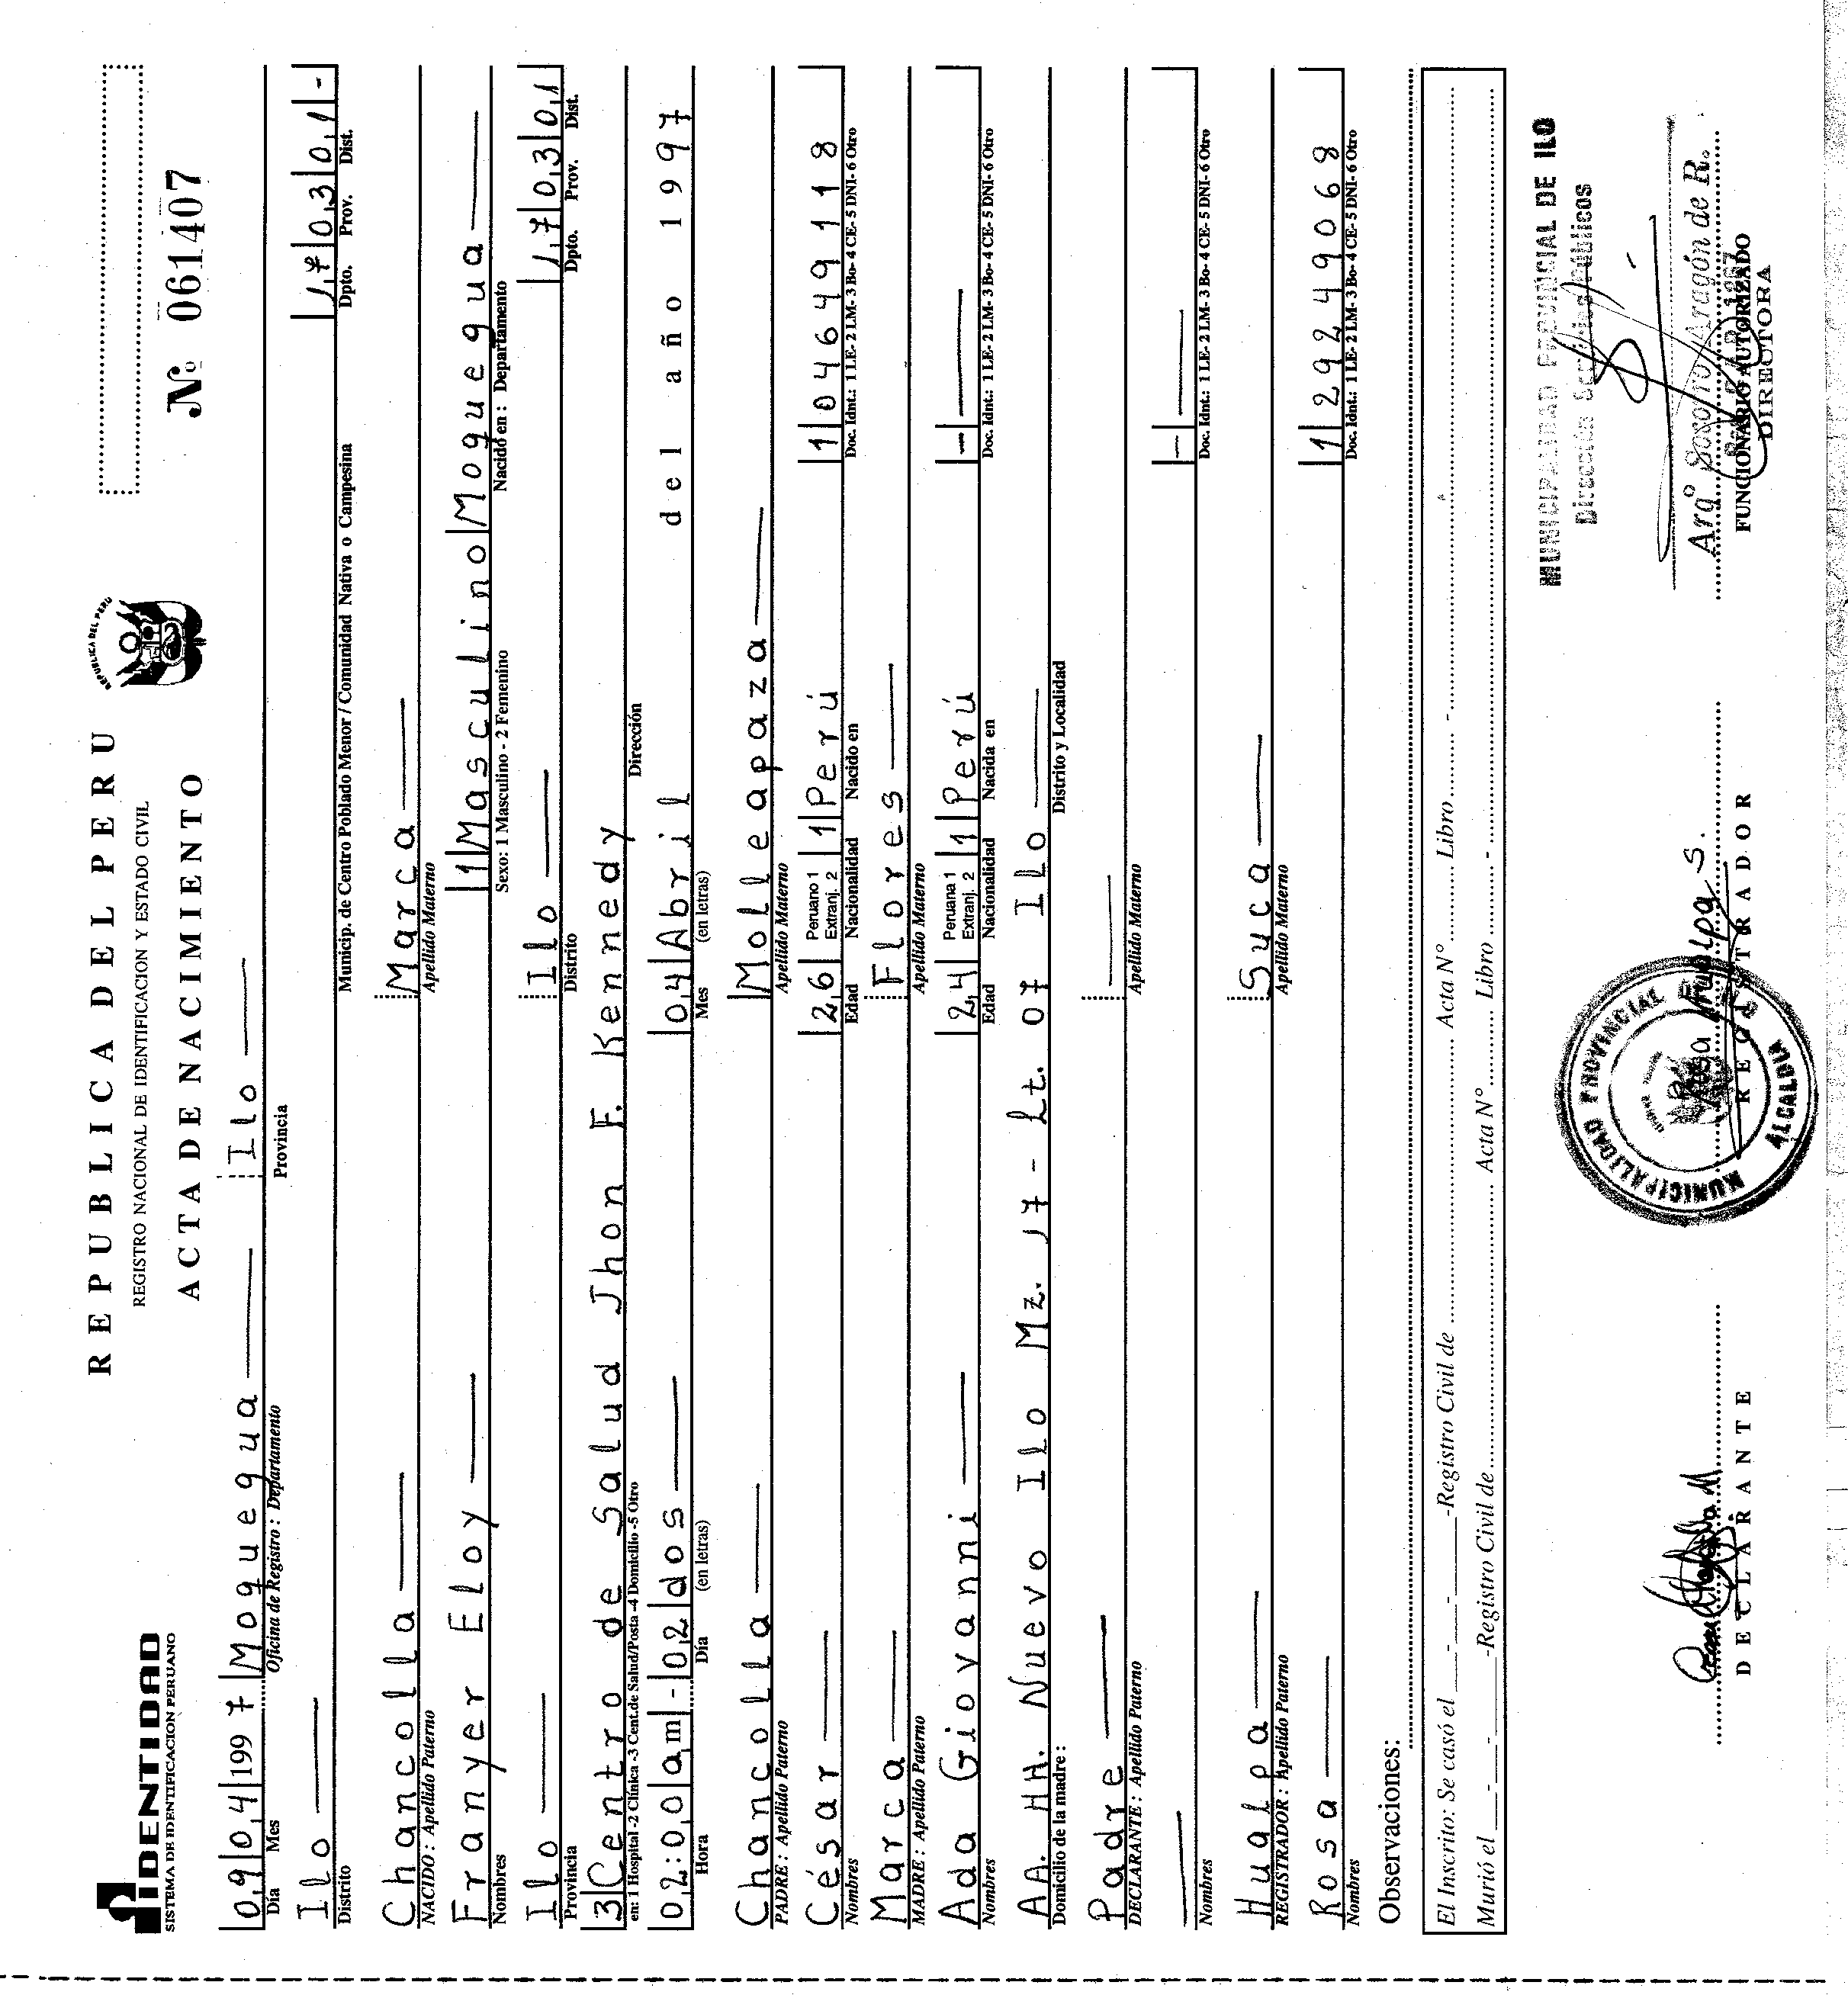 IDENTIDAD
SISTEMA DE IDENTIFICACION PERUANO
REPUBLICA DEL PERU
REPUBLICA DEL PERU
REGISTRO NACIONAL DE IDENTIFICACION Y ESTADO CIVIL
ACTA DE NACIMIENTO
Nº 061407
09 04 1997 Moquegua Ilo
Día Mes Oficina de Registro : Departamento Provincia
Ilo 17 03 01 -
Distrito Municip. de Centro Poblado Menor / Comunidad Nativa o Campesina Dpto. Prov. Dist.
Chancolla Marca
NACIDO : Apellido Paterno Apellido Materno
Franyer Eloy 1 Masculino Moquegua
Nombres Sexo: 1 Masculino - 2 Femenino Nacido en : Departamento
Ilo Ilo 17 03 01
Provincia Distrito Dpto. Prov. Dist.
3 Centro de Salud Jhon F. Kennedy
en: 1 Hospital -2 Clínica -3 Cent.de Salud/Posta -4 Domicilio -5 Otro Dirección
02:00 am - 02 dos 04 Abril del año 1997
Hora Día (en letras) Mes (en letras)
Chancolla Molleapaza
PADRE : Apellido Paterno Apellido Materno
César 26 Peruano 1 Extranj. 2 1 Perú 1 04649118
Nombres Edad Nacionalidad Nacido en Doc. Idnt.: 1 LE- 2 LM- 3 Bo- 4 CE- 5 DNI- 6 Otro
Marca Flores
MADRE : Apellido Paterno Apellido Materno
Ada Giovanni 24 Peruana 1 Extranj. 2 1 Perú -
Nombres Edad Nacionalidad Nacida en Doc. Idnt.: 1 LE- 2 LM- 3 Bo- 4 CE- 5 DNI- 6 Otro
AA. HH. Nuevo Ilo Mz. 17 - Lt. 07 Ilo
Domicilio de la madre : Distrito y Localidad
Padre
DECLARANTE : Apellido Paterno Apellido Materno
-
Nombres Doc. Idnt.: 1 LE- 2 LM- 3 Bo- 4 CE- 5 DNI- 6 Otro
Hualpa Suca
REGISTRADOR : Apellido Paterno Apellido Materno
Rosa 1 29249068
Nombres Doc. Idnt.: 1 LE- 2 LM- 3 Bo- 4 CE- 5 DNI- 6 Otro
Observaciones:
El Inscrito: Se casó el - - -Registro Civil de Acta Nº Libro -
Murió el - - -Registro Civil de Acta Nº Libro -
MUNICIPALIDAD PROVINCIAL DE ILO
Dirección Servicios Públicos
MUNICIPALIDAD PROVINCIAL
ALCALDIA
Rosa Hualpa S.
Arqº Socorro Aragón de R.
DECLARANTE
REGISTRADOR
FUNCIONARIO AUTORIZADO
DIRECTORA